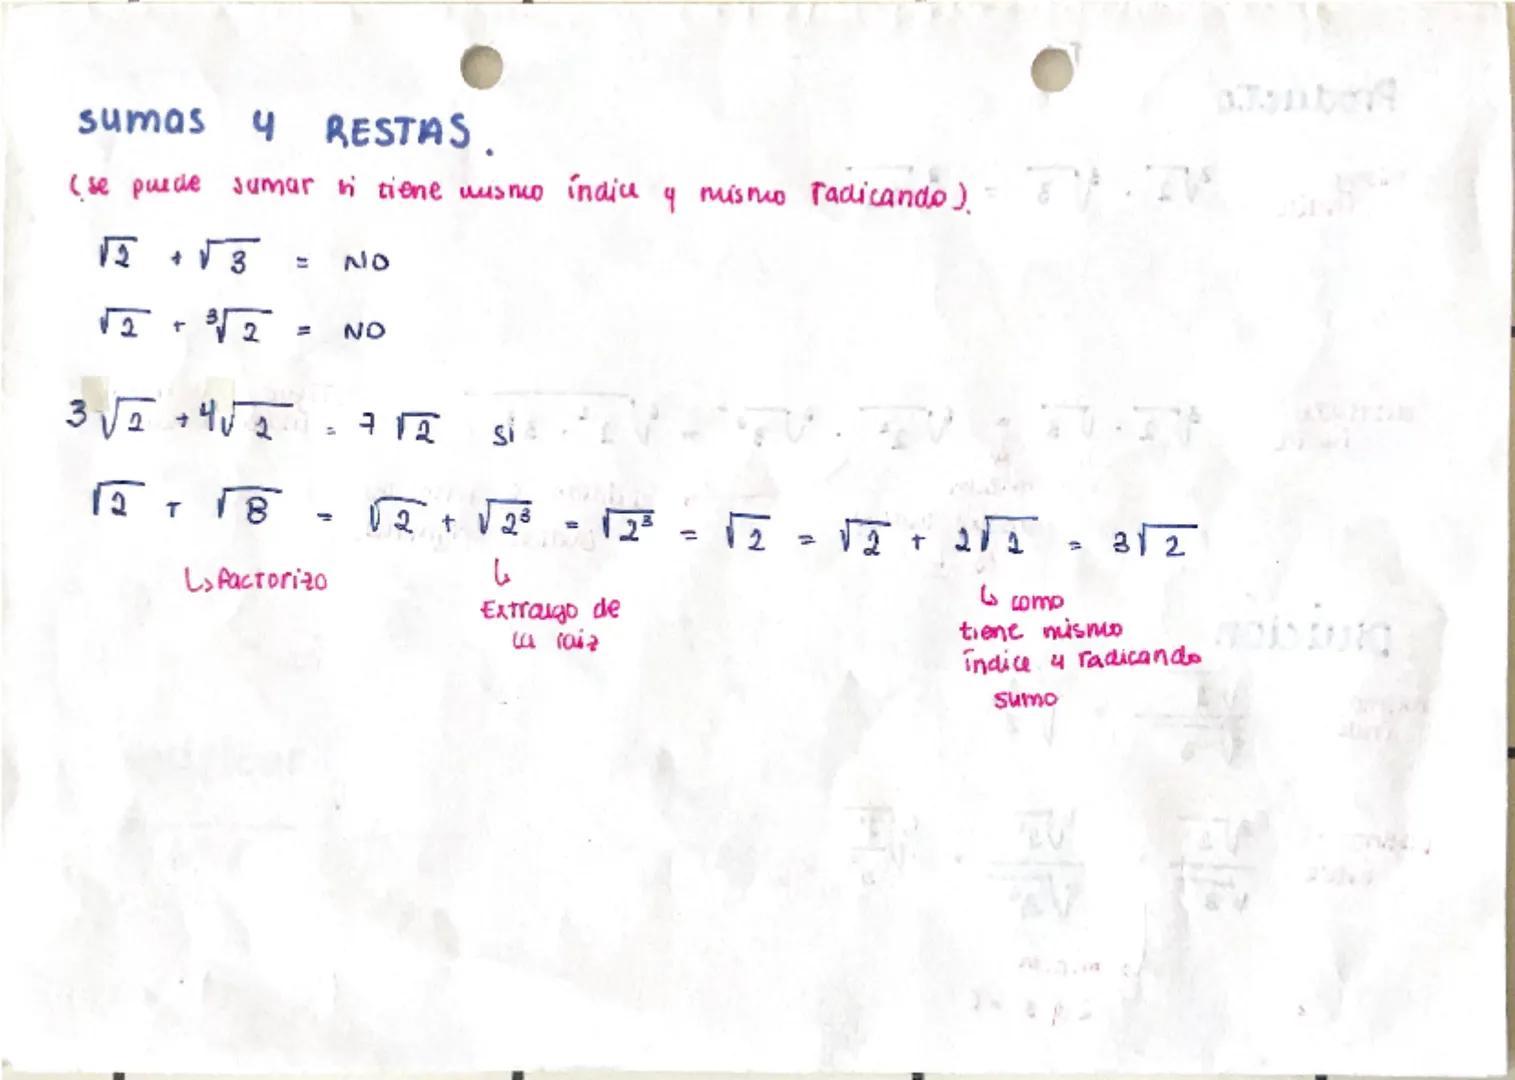 sumas y RESTAS.
(se puede sumar si tiene mismo índice y mismo radicando).
√2 + √3 = NO
√2 + ³√2 = NO
3√2 + 4√2 = 7√2 si
√2 + √8 = √2 + √2³ = √2³ = √2 = √2 + 2√2 = 3√2
↳ factorizo
↳ Extraigo de la raiz
↳ como tiene mismo índice y radicando sumo